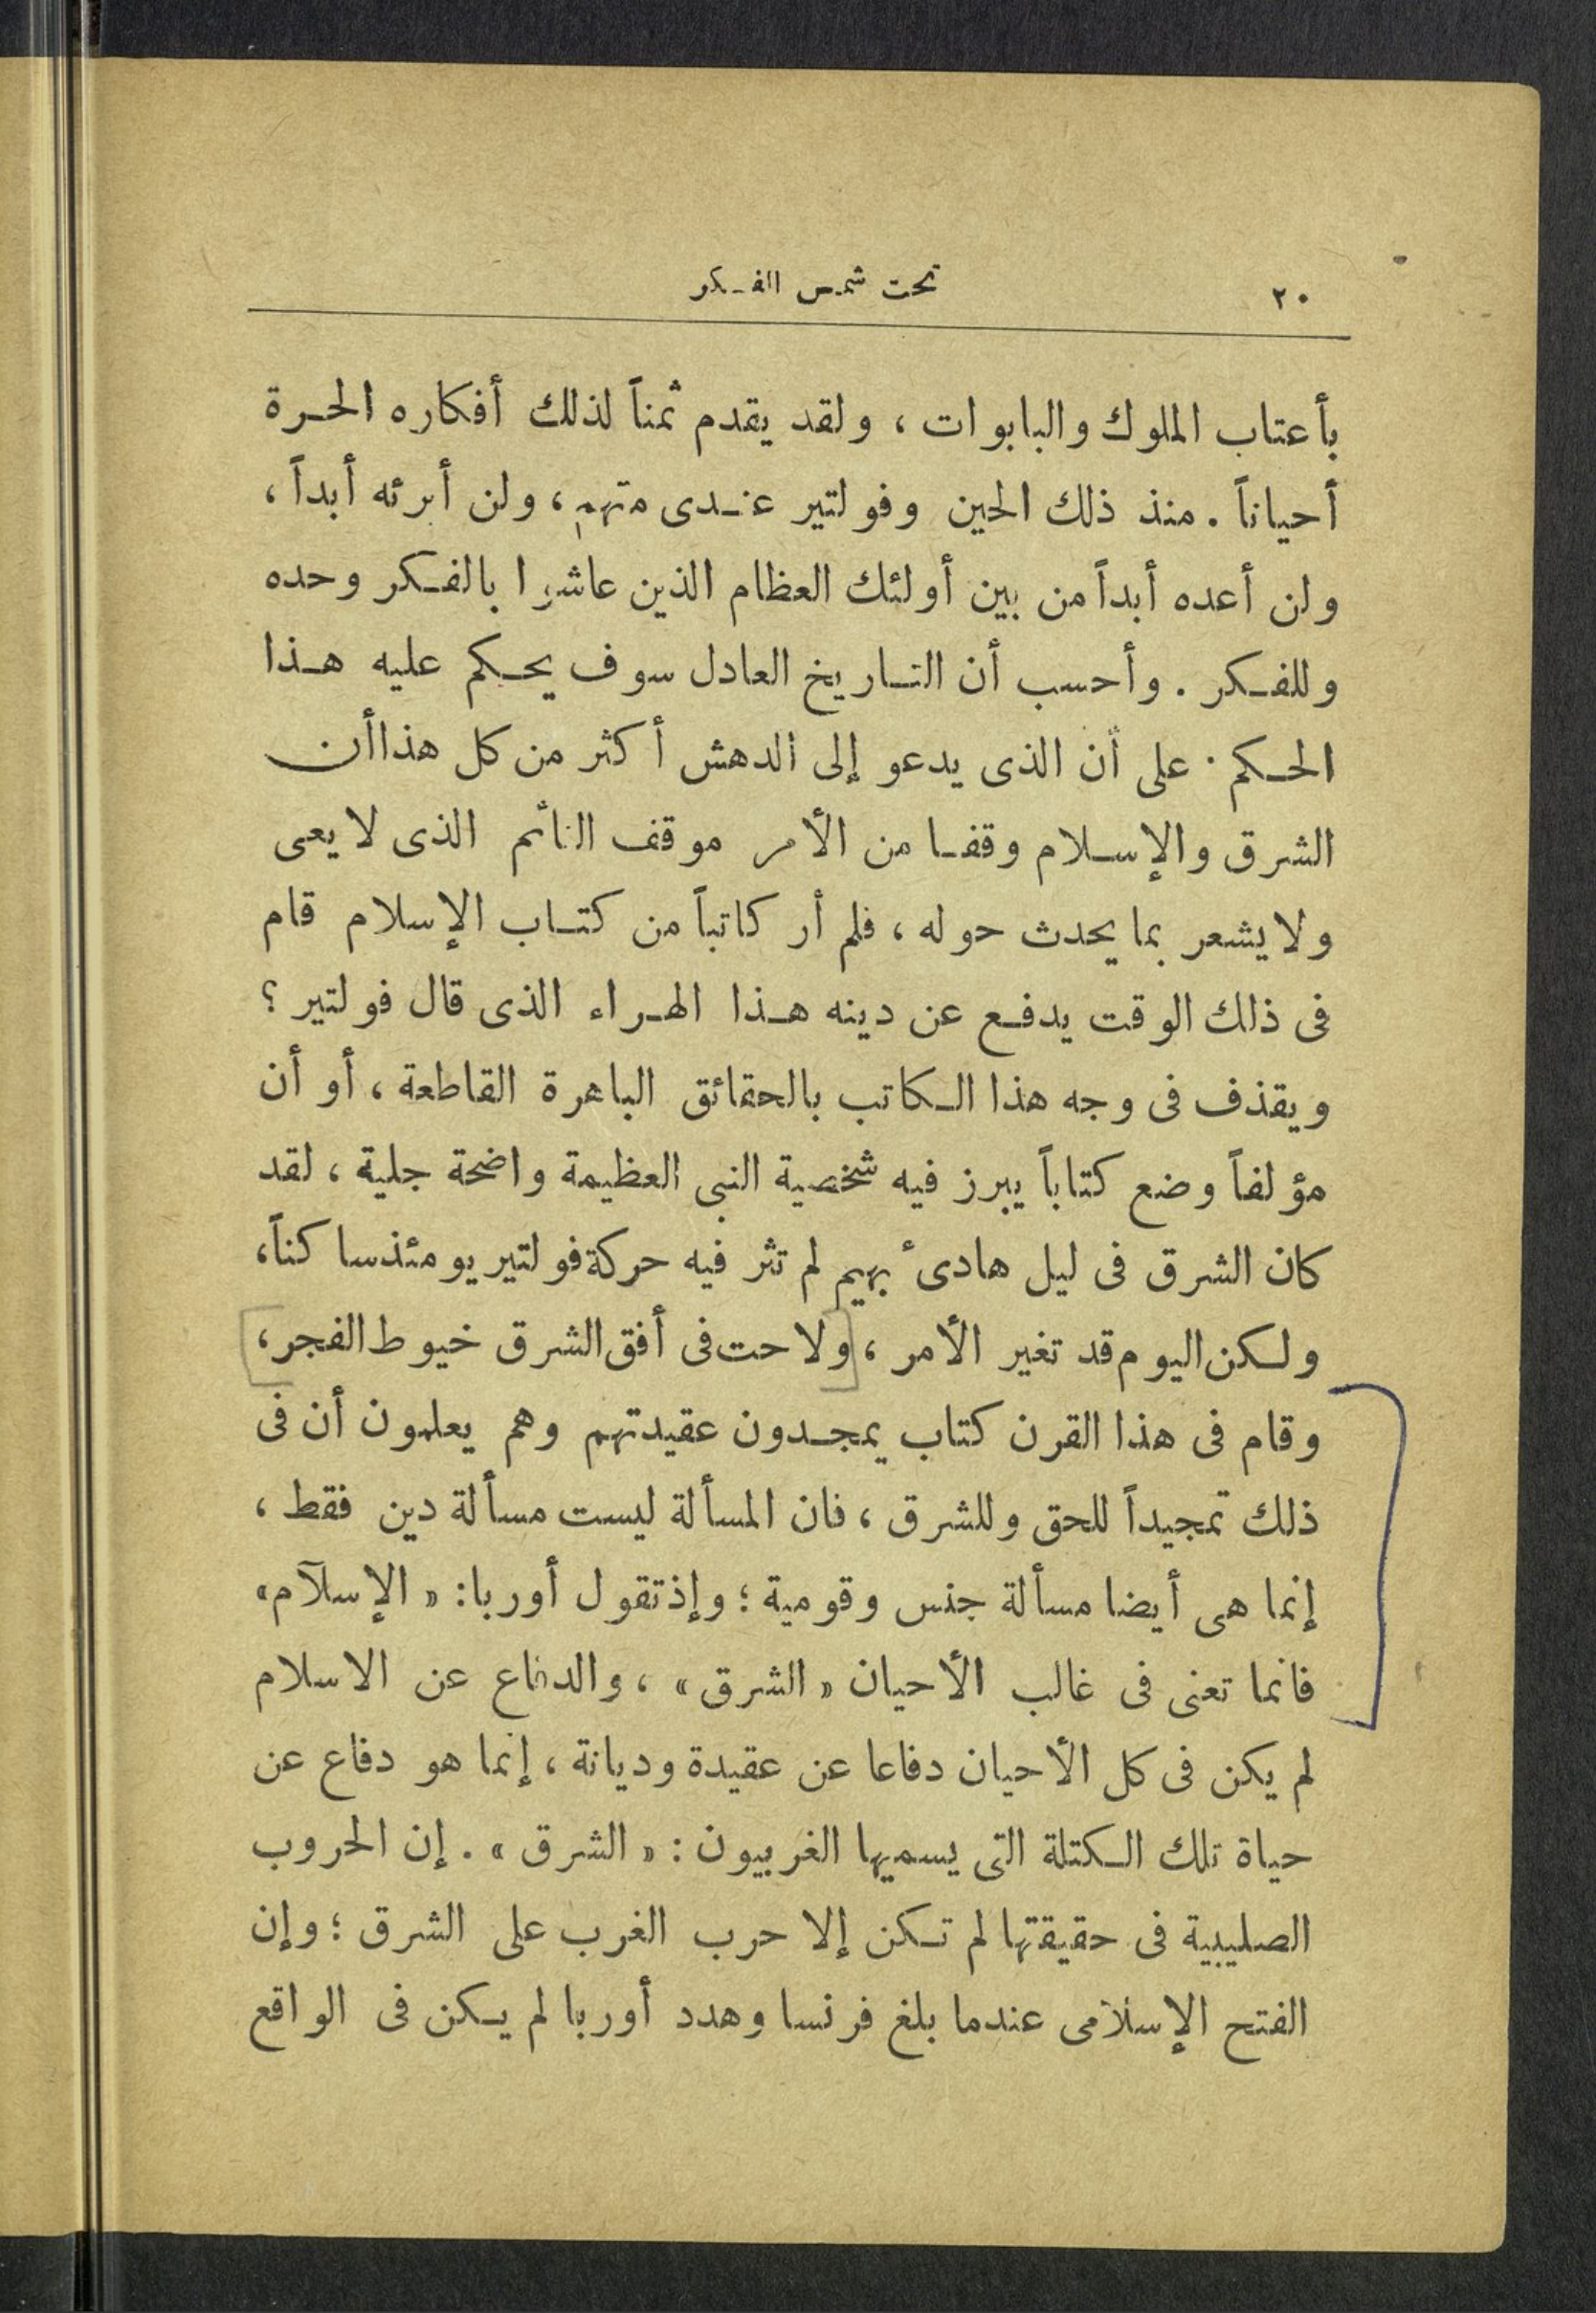 ٢٠ تحت شمس الفكر
بأعتاب الملوك والبابوات ، ولقد يقدم ثمناً لذلك أفكاره الحرة
أحياناً . منذ ذلك الحين وفولتير عندى متهم ، ولن أبرئه أبداً ،
ولن أعده أبداً من بين أولئك العظام الذين عاشوا بالفكر وحده
وللفكر . وأحسب أن التاريخ العادل سوف يحكم عليه هذا
الحكم . على أن الذى يدعو إلى الدهش أكثر من كل هذا أن
الشرق والإسلام وقفا من الأمر موقف النائم الذى لا يعى
ولا يشعر بما يحدث حوله ، فلم أر كاتباً من كتاب الإسلام قام
فى ذلك الوقت يدفع عن دينه هذا الهراء الذى قال فولتير ؟
ويقذف فى وجه هذا الكاتب بالحقائق الباهرة القاطعة ، أو أن
مؤلفاً وضع كتاباً يبرز فيه شخصية النبى العظيمة واضحة جلية ، لقد
كان الشرق فى ليل هادئ بهيم لم تثر فيه حركة فولتير يومئذ ساكناً ،
ولكن اليوم قد تغير الأمر ، [ولاحت فى أفق الشرق خيوط الفجر ،]
وقام فى هذا القرن كتاب يمجدون عقيدتهم وهم يعلمون أن فى
ذلك تمجيداً للحق وللشرق ، فان المسألة ليست مسألة دين فقط ،
إنما هى أيضا مسألة جنس وقومية ؛ وإذ تقول أوربا : « الإسلام »
فانما تعنى فى غالب الأحيان « الشرق » ، والدفاع عن الاسلام
لم يكن فى كل الأحيان دفاعا عن عقيدة وديانة ، إنما هو دفاع عن
حياة تلك الكتلة التى يسميها الغربيون : « الشرق » . إن الحروب
الصليبية فى حقيقتها لم تكن إلا حرب الغرب على الشرق ؛ وإن
الفتح الإسلامى عندما بلغ فرنسا وهدد أوربا لم يكن فى الواقع